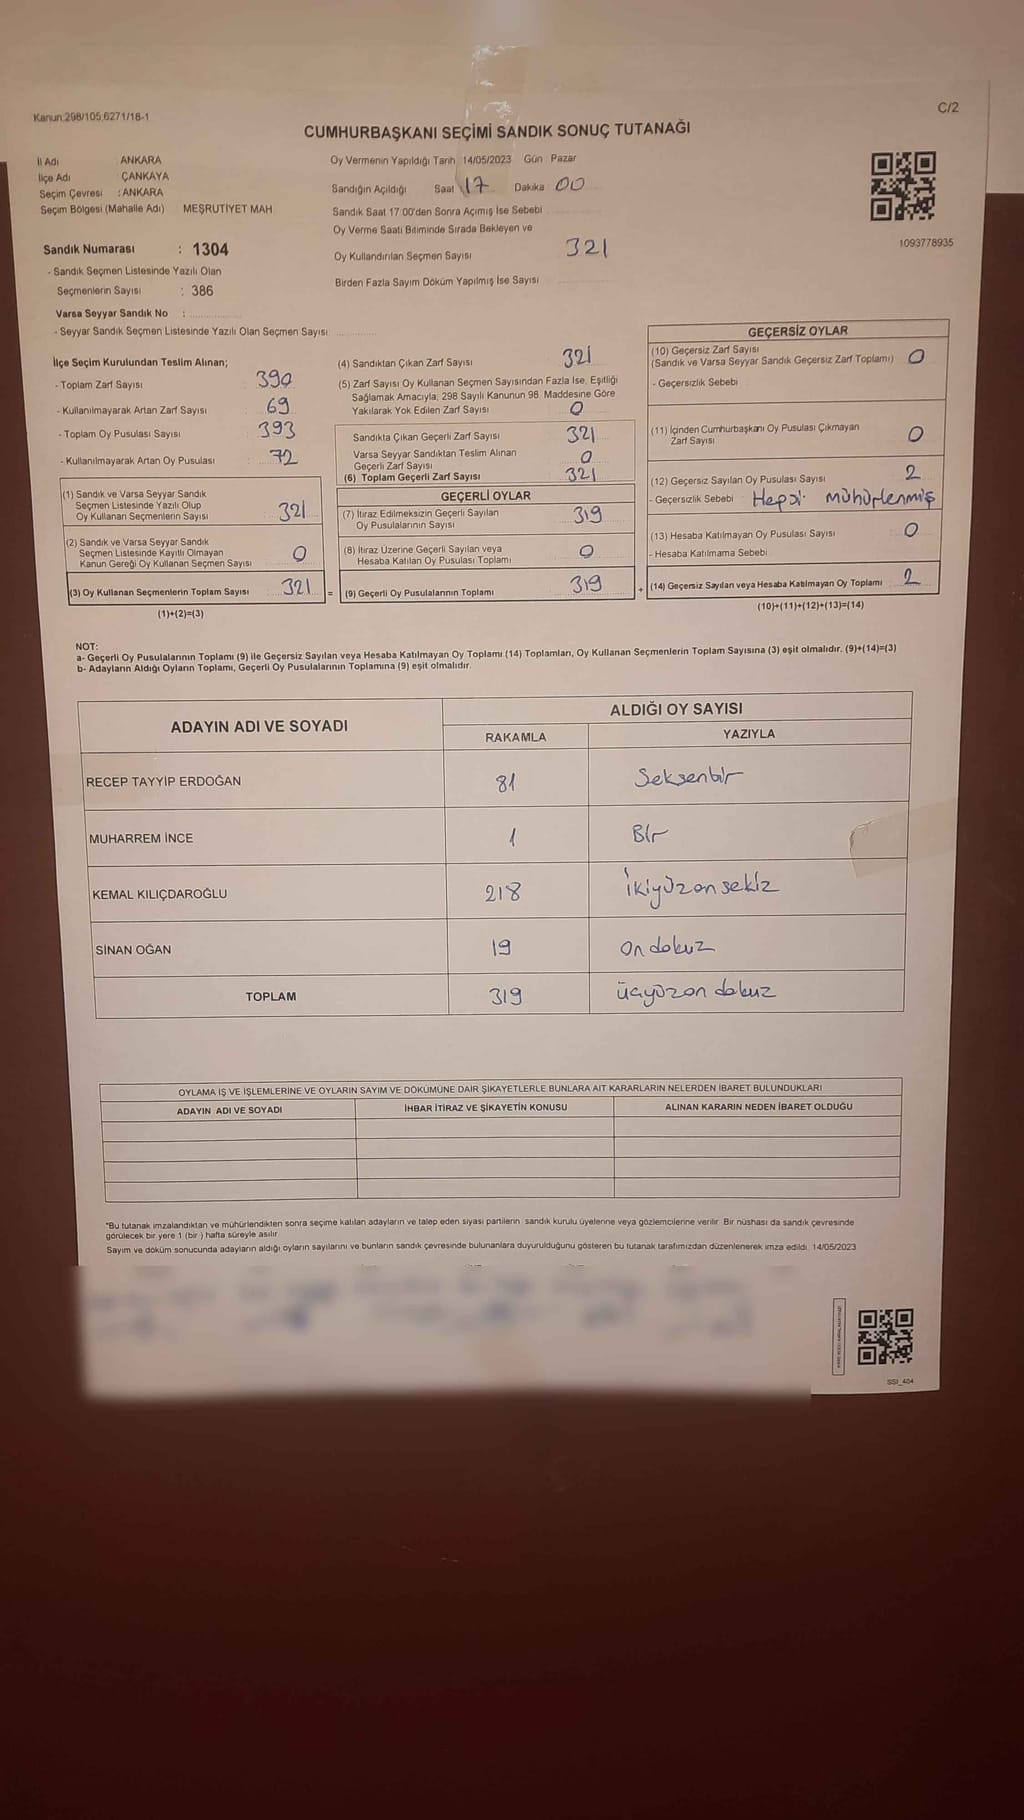 Kanun:298/105,6271/18-1
C/2
CUMHURBAŞKANI SEÇİMİ SANDIK SONUÇ TUTANAĞI
İl Adı : ANKARA
İlçe Adı : ÇANKAYA
Seçim Çevresi : ANKARA
Seçim Bölgesi (Mahalle Adı) MEŞRUTİYET MAH
Sandık Numarası : 1304
- Sandık Seçmen Listesinde Yazılı Olan
Seçmenlerin Sayısı : 386
Varsa Seyyar Sandık No :
- Seyyar Sandık Seçmen Listesinde Yazılı Olan Seçmen Sayısı:
Oy Vermenin Yapıldığı Tarih: 14/05/2023 Gün : Pazar
Sandığın Açıldığı Saat 17 Dakika 00
Sandık Saat 17:00'den Sonra Açımış İse Sebebi
Oy Verme Saati Bitiminde Sırada Bekleyen ve
Oy Kullandırılan Seçmen Sayısı 321
Birden Fazla Sayım Döküm Yapılmış İse Sayısı
1093778935
İlçe Seçim Kurulundan Teslim Alınan;
- Toplam Zarf Sayısı 390
- Kullanılmayarak Artan Zarf Sayısı 69
- Toplam Oy Pusulası Sayısı 393
- Kullanılmayarak Artan Oy Pusulası 72
(1) Sandık ve Varsa Seyyar Sandık
Seçmen Listesinde Yazılı Olup
Oy Kullanan Seçmenlerin Sayısı 321
(2) Sandık ve Varsa Seyyar Sandık
Seçmen Listesinde Kayıtlı Olmayan
Kanun Gereği Oy Kullanan Seçmen Sayısı 0
(3) Oy Kullanan Seçmenlerin Toplam Sayısı 321 =
(1)+(2)=(3)
(4) Sandıktan Çıkan Zarf Sayısı 321
(5) Zarf Sayısı Oy Kullanan Seçmen Sayısından Fazla İse, Eşitliği
Sağlamak Amacıyla; 298 Sayılı Kanunun 98. Maddesine Göre
Yakılarak Yok Edilen Zarf Sayısı 0
Sandıkta Çıkan Geçerli Zarf Sayısı 321
Varsa Seyyar Sandıktan Teslim Alınan
Geçerli Zarf Sayısı 0
(6) Toplam Geçerli Zarf Sayısı 321
GEÇERLİ OYLAR
(7) İtiraz Edilmeksizin Geçerli Sayılan
Oy Pusulalarının Sayısı 319
(8) İtiraz Üzerine Geçerli Sayılan veya
Hesaba Katılan Oy Pusulası Toplamı 0
(9) Geçerli Oy Pusulalarının Toplamı 319 +
GEÇERSİZ OYLAR
(10) Geçersiz Zarf Sayısı
(Sandık ve Varsa Seyyar Sandık Geçersiz Zarf Toplamı) 0
- Geçersizlik Sebebi
(11) İçinden Cumhurbaşkanı Oy Pusulası Çıkmayan
Zarf Sayısı 0
(12) Geçersiz Sayılan Oy Pusulası Sayısı 2
- Geçersizlik Sebebi Hepsi mühürlenmiş
(13) Hesaba Katılmayan Oy Pusulası Sayısı 0
- Hesaba Katılmama Sebebi
(14) Geçersiz Sayılan veya Hesaba Katılmayan Oy Toplamı 2
(10)+(11)+(12)+(13)=(14)
NOT:
a- Geçerli Oy Pusulalarının Toplamı (9) ile Geçersiz Sayılan veya Hesaba Katılmayan Oy Toplamı (14) Toplamları, Oy Kullanan Seçmenlerin Toplam Sayısına (3) eşit olmalıdır. (9)+(14)=(3)
b- Adayların Aldığı Oyların Toplamı, Geçerli Oy Pusulalarının Toplamına (9) eşit olmalıdır.
ADAYIN ADI VE SOYADI
ALDIĞI OY SAYISI
RAKAMLA YAZIYLA
RECEP TAYYİP ERDOĞAN 81 Seksenbir
MUHARREM İNCE 1 Bir
KEMAL KILIÇDAROĞLU 218 ikiyüzonsekiz
SİNAN OĞAN 19 on dokuz
TOPLAM 319 üçyüzon dokuz
OYLAMA İŞ VE İŞLEMLERİNE VE OYLARIN SAYIM VE DÖKÜMÜNE DAİR ŞİKAYETLERLE BUNLARA AİT KARARLARIN NELERDEN İBARET BULUNDUKLARI
ADAYIN ADI VE SOYADI İHBAR İTİRAZ VE ŞİKAYETİN KONUSU ALINAN KARARIN NEDEN İBARET OLDUĞU
*Bu tutanak imzalandıktan ve mühürlendikten sonra seçime katılan adayların ve talep eden siyasi partilerin sandık kurulu üyelerine veya gözlemcilerine verilir. Bir nüshası da sandık çevresinde
görülecek bir yere 1 (bir) hafta süreyle asılır.
Sayım ve döküm sonucunda adayların aldığı oyların sayılarını ve bunların sandık çevresinde bulunanlara duyurulduğunu gösteren bu tutanak tarafımızdan düzenlenerek imza edildi. 14/05/2023
SSI_404